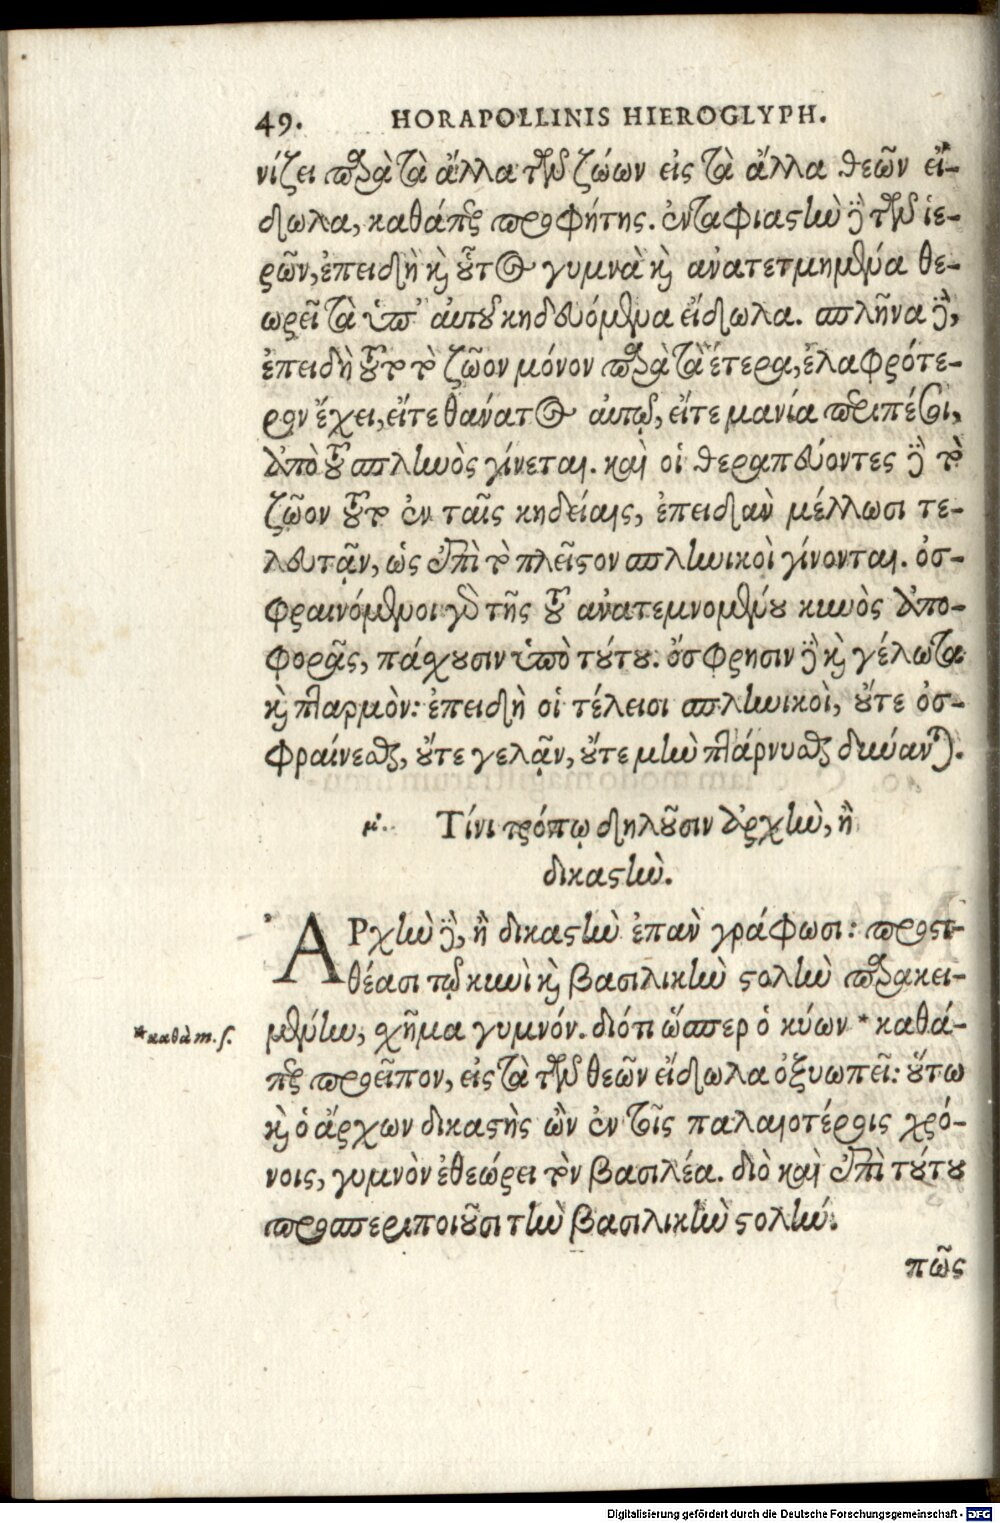 49. HORAPOLLINIS HIEROGLYPH.
νίζει παρὰ τὰ ἄλλα τῶν ζώων εἰς τὰ ἄλλα θεῶν εἴ-
δωλα, καθάπερ προφήτης. ἐνταφιαστὴν δὲ τῶν ἱε-
ρῶν, ἐπειδὴ καὶ οὗτος γυμνὰ καὶ ἀνατετμημένα θε-
ωρεῖ τὰ ὑπ' αὐτοῦ κηδευόμενα εἴδωλα. σπλῆνα δὲ,
ἐπειδὴ τοῦτο τὸ ζῶον μόνον παρὰ τὰ ἕτερα, ἐλαφρότε-
ρον ἔχει, εἴτε θάνατος αὐτῷ, εἴτε μανία περιπέσοι,
ἀπὸ τοῦ σπληνὸς γίνεται. καὶ οἱ θεραπεύοντες δὲ τὸ
ζῷον τοῦτο ἐν ταῖς κηδείαις, ἐπειδὰν μέλλωσι τε-
λευτᾷν, ὡς ἐπὶ τὸ πλεῖστον σπληνικοὶ γίνονται. ὀσ-
φραινόμενοι γὰρ τῆς τοῦ ἀνατεμνομένου κυνὸς ἀπο-
φορᾶς, πάσχουσιν ὑπὸ τούτου. ὄσφρησιν δὲ καὶ γέλωτα
καὶ πταρμὸν: ἐπειδὴ οἱ τέλειοι σπληνικοὶ, οὔτε ὀσ-
φραίνεσθαι, οὔτε γελᾷν, οὔτε μὴν πτάρνυσθαι δύνανται.
μ. Τίνι τρόπῳ δηλοῦσιν ἀρχὴν, ἢ
δικαστήν.
ΑΡχὴν δὲ, ἢ δικαστὴν ἐπὰν γράφωσι: προστι-
θέασι τῷ κυνὶ καὶ βασιλικὴν στολὴν παρακει-
μένην, σχῆμα γυμνόν. διότι ὥσπερ ὁ κύων * καθά-
* καθὰ m. s.
περ προεῖπον, εἰς τὰ τῶν θεῶν εἴδωλα ὀξυωπεῖ: οὕτω
καὶ ὁ ἄρχων δικαστὴς ὢν ἐν τοῖς παλαιοτέροις χρό-
νοις, γυμνὸν ἐθεώρει τὸν βασιλέα. διὸ καὶ ἐπὶ τούτου
προσπεριποιοῦσι τὴν βασιλικὴν στολήν.
πῶς
Digitalisierung gefördert durch die Deutsche Forschungsgemeinschaft - DFG